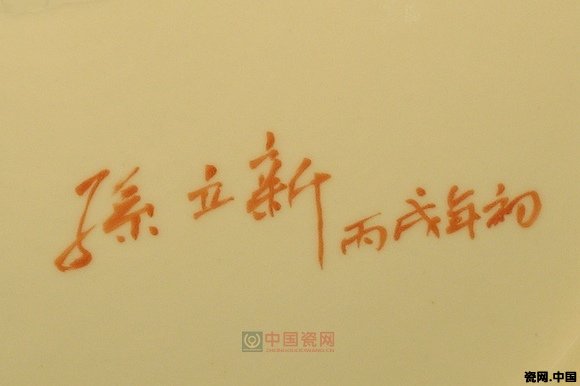 孫立新 丙戌年初
中国瓷网
瓷网.中国